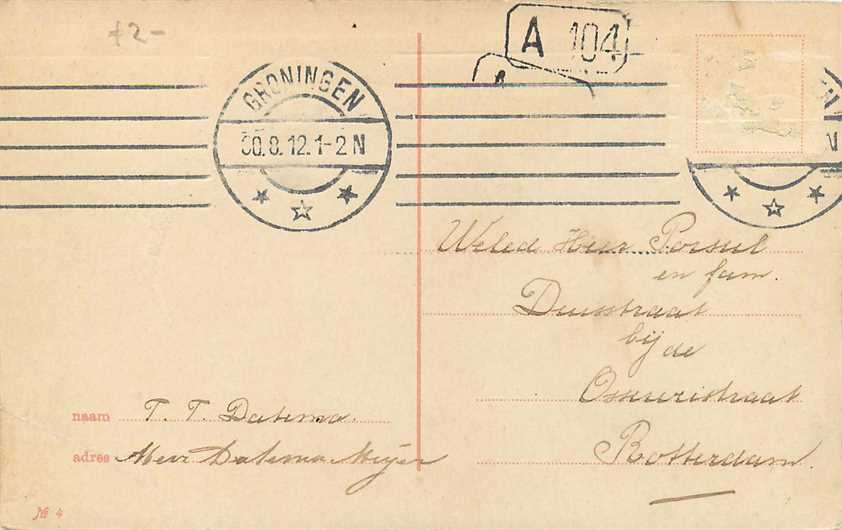 f 2-
A 104
A
GRONINGEN
30.8.12.1-2 N
N
Weled Heer Porsul
en fam.
Duisstraat
bij de
Ossewistraat
Rotterdam.
naam T. T. Datema.
adres Mevr Datema Meijer
№ 4